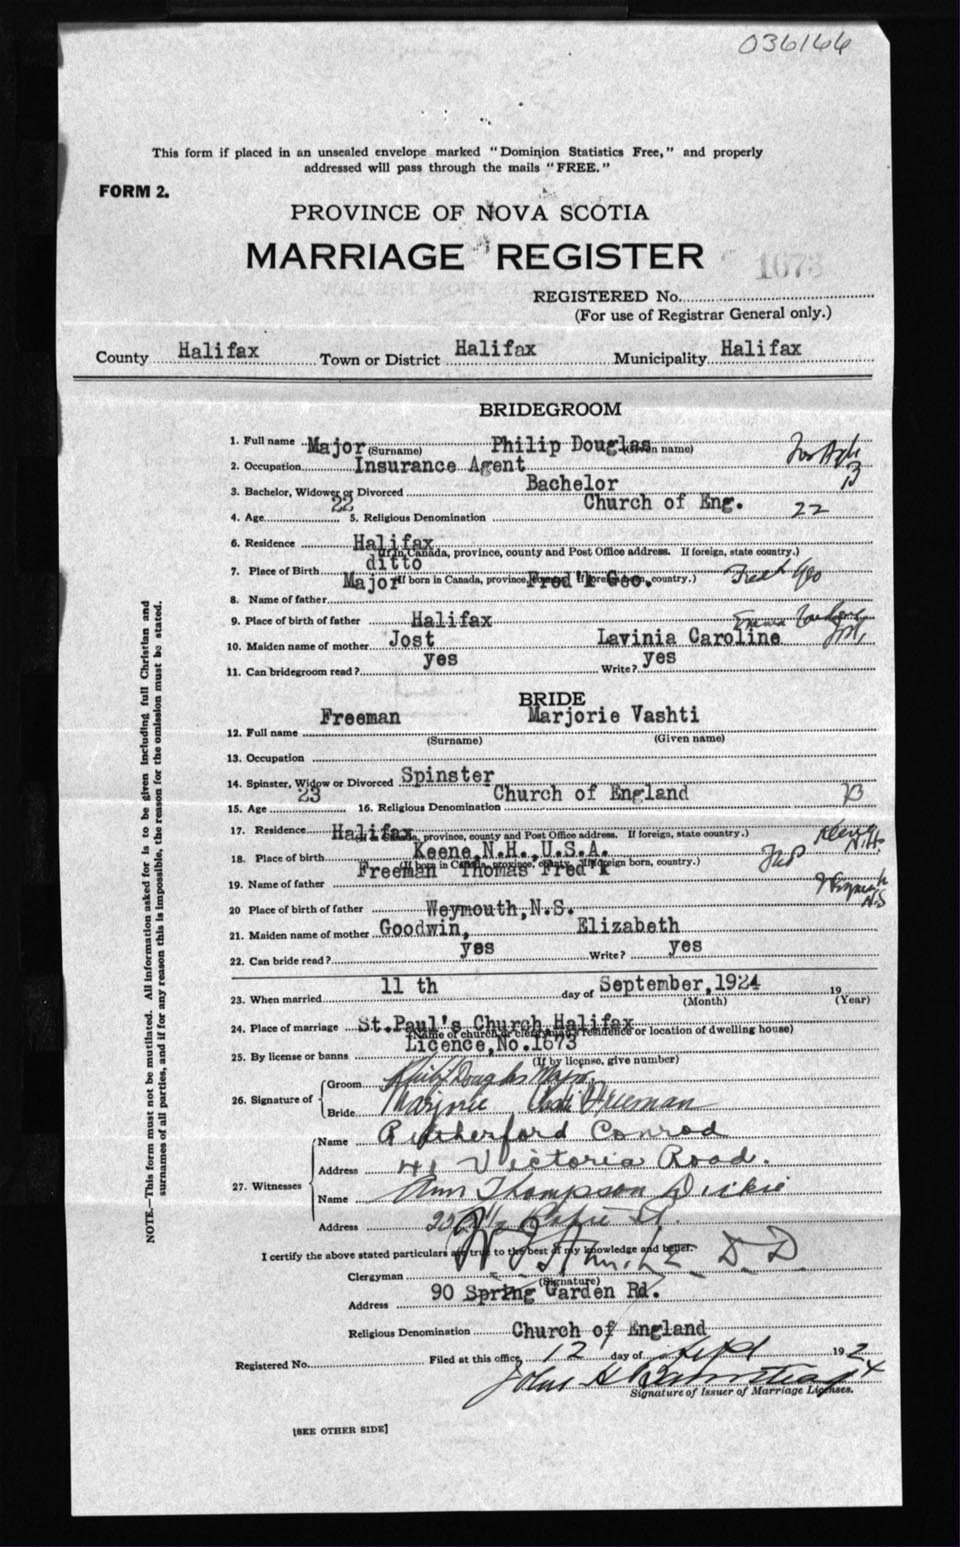 036166
This form if placed in an unsealed envelope marked "Dominion Statistics Free," and properly
addressed will pass through the mails "FREE."
FORM 2.
PROVINCE OF NOVA SCOTIA
MARRIAGE REGISTER
1673
REGISTERED No.
(For use of Registrar General only.)
County Halifax Town or District Halifax Municipality Halifax
BRIDEGROOM
1. Full name Major (Surname) Philip Douglas (Given name)
2. Occupation Insurance Agent
3. Bachelor, Widower or Divorced Bachelor B
4. Age 22 5. Religious Denomination Church of Eng. 22
6. Residence Halifax
(If in Canada, province, county and Post Office address. If foreign, state country.)
7. Place of Birth ditto
(If born in Canada, province, county. If foreign born, country.)
8. Name of father Major Fred'k Geo. Fred Geo
9. Place of birth of father Halifax
10. Maiden name of mother Jost Lavinia Caroline Jost
11. Can bridegroom read? yes Write? yes
BRIDE
12. Full name Freeman Marjorie Vashti
(Surname) (Given name)
13. Occupation
14. Spinster, Widow or Divorced Spinster
15. Age 23 16. Religious Denomination Church of England B
17. Residence Halifax
(If in Canada, province, county and Post Office address. If foreign, state country.)
18. Place of birth Keene, N.H., U.S.A. Keene N.H.
(If born in Canada, province, county. If foreign born, country.)
19. Name of father Freeman Thomas Fred'k
20 Place of birth of father Weymouth, N.S. Weymouth N.S
21. Maiden name of mother Goodwin, Elizabeth
22. Can bride read? yes Write? yes
23. When married 11 th day of September, 1924 19
(Month) (Year)
24. Place of marriage St. Paul's Church Halifax
(Name of church or clergyman's residence or location of dwelling house)
25. By license or banns Licence, No. 1673
(If by license, give number)
26. Signature of Groom Philip Douglas Major
Bride Marjorie Vashti Freeman
27. Witnesses Name Rutherford Conrod
Address 41 Victoria Road.
Name Ann Thompson Dickie
Address St.
I certify the above stated particulars are true to the best of my knowledge and belief.
Clergyman D.D.
(Signature)
Address 90 Spring Garden Rd.
Religious Denomination Church of England
Registered No. Filed at this office, 12 day of Sept 1924
John H
Signature of Issuer of Marriage Licenses.
[SEE OTHER SIDE]
NOTE.—This form must not be mutilated. All information asked for is to be given including full Christian and
surnames of all parties, and if for any reason this is impossible, the reason for the omission must be stated.